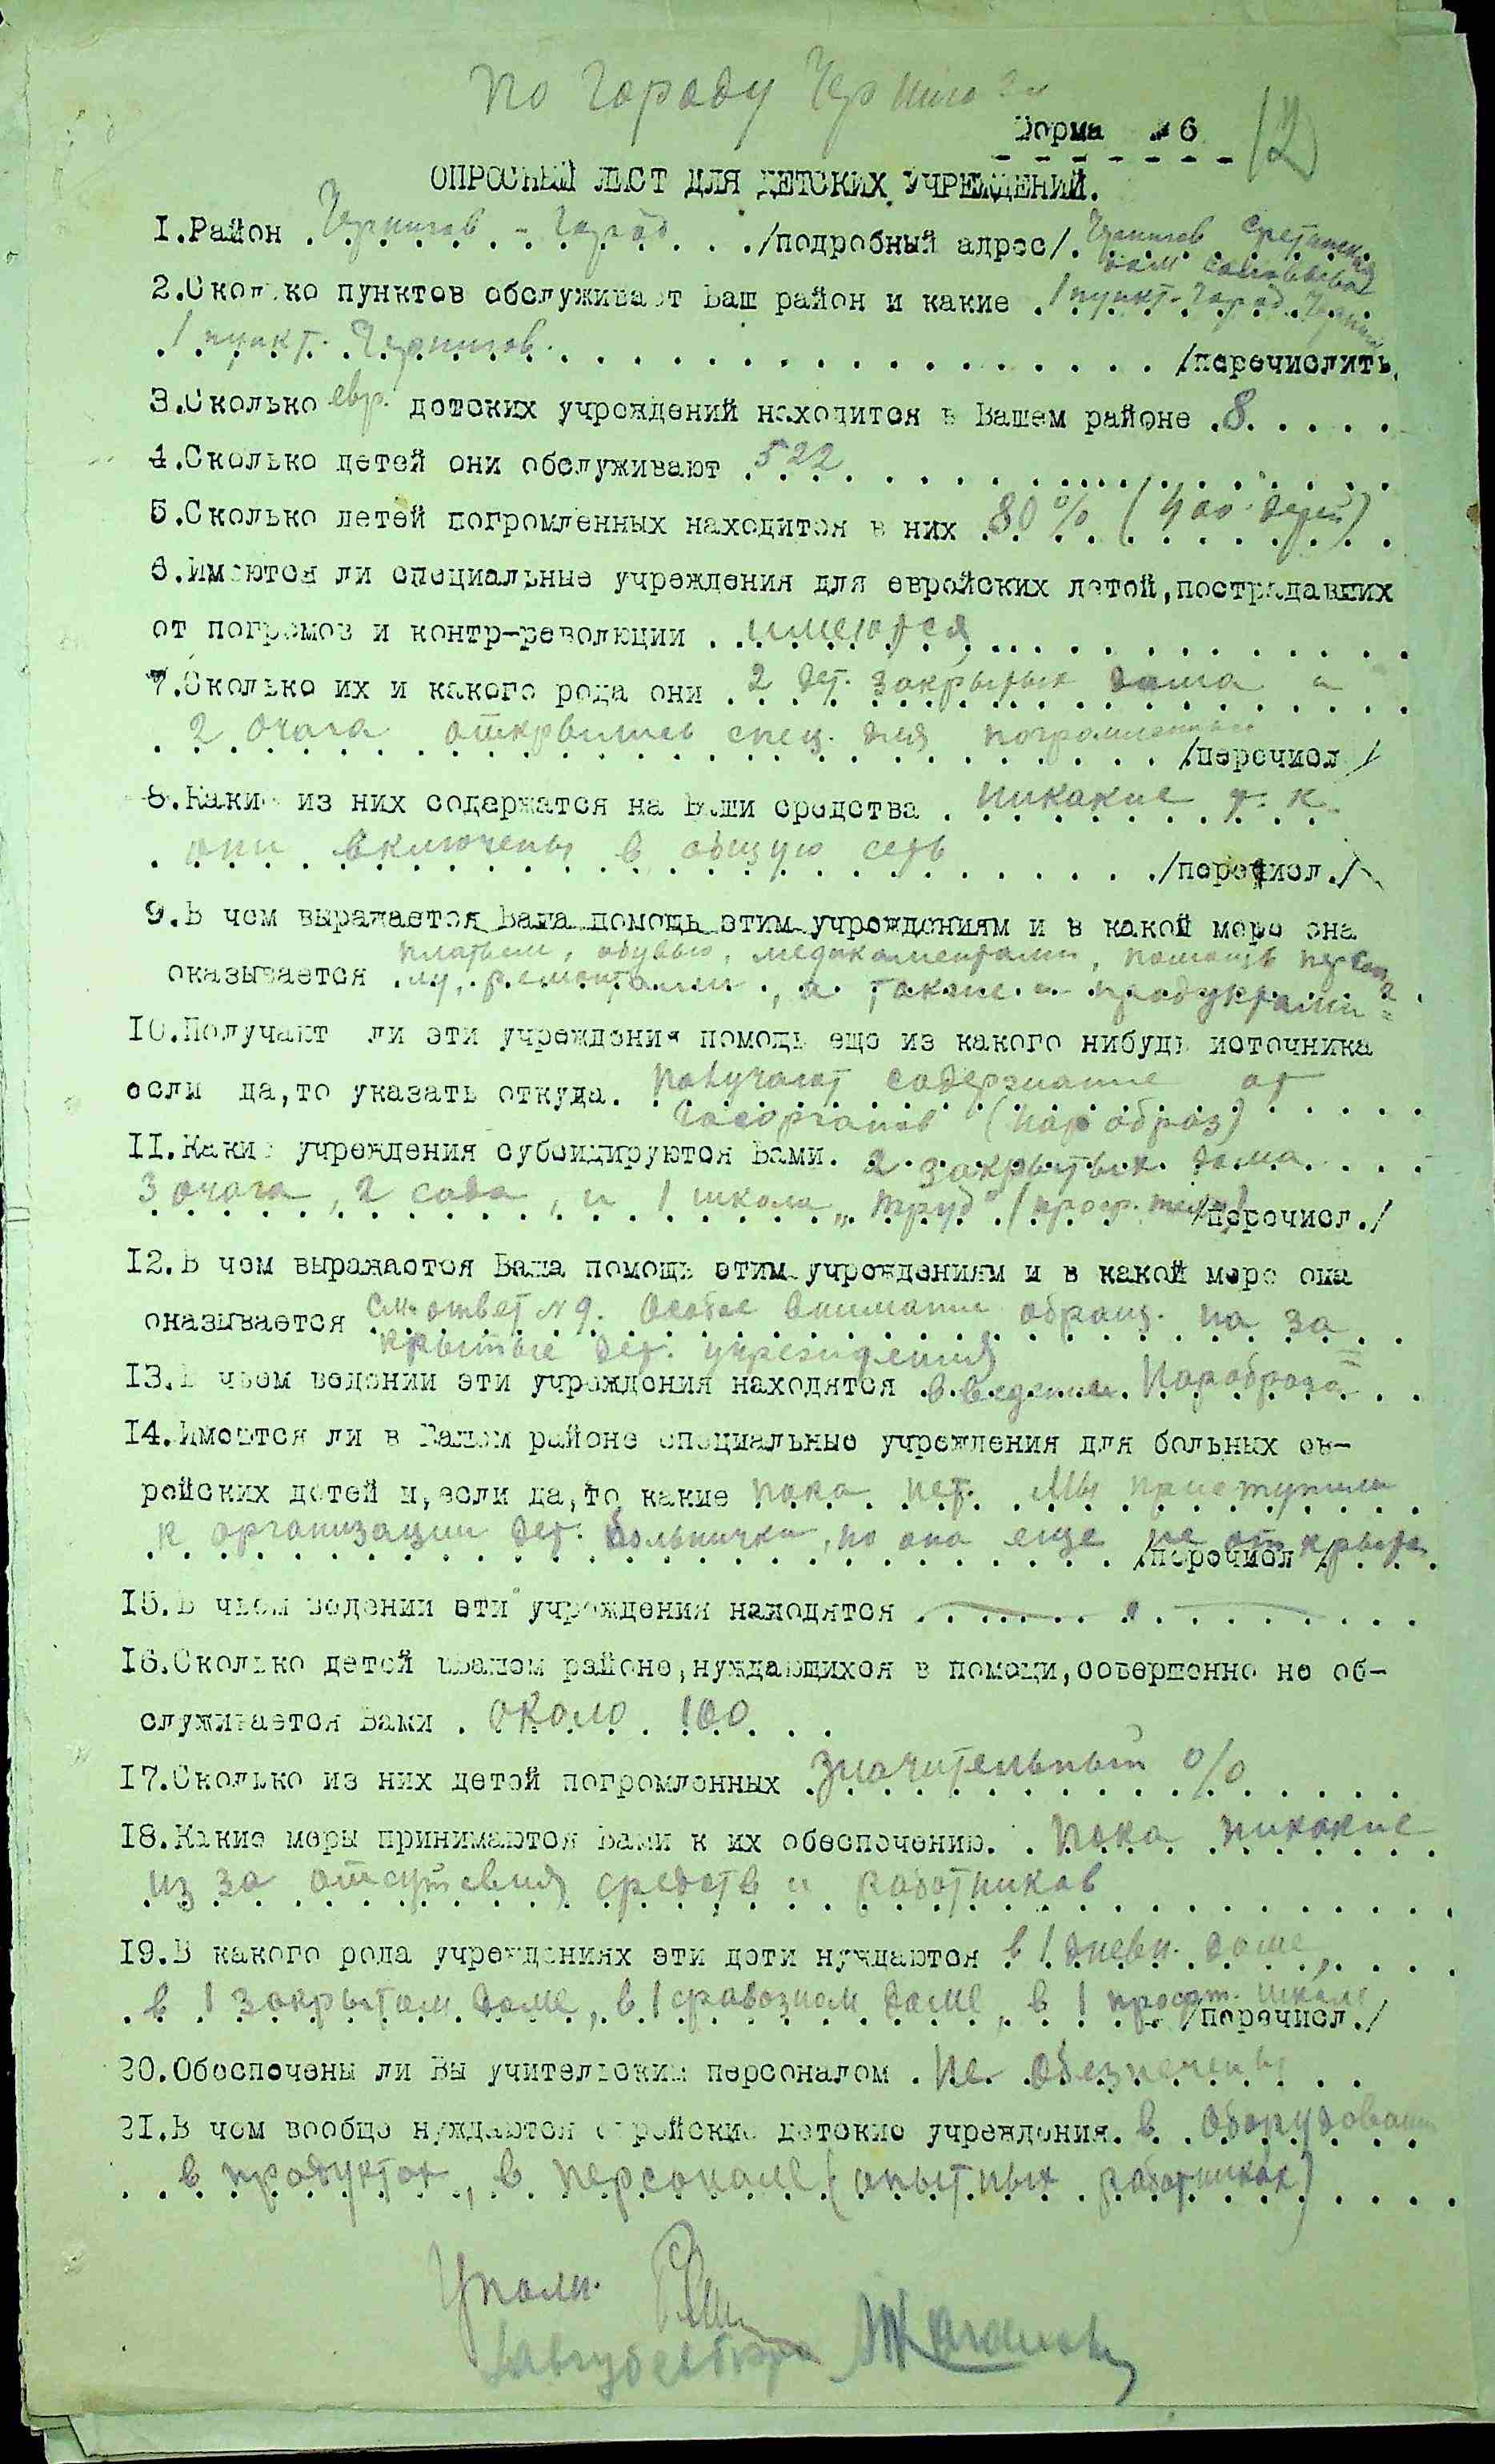 по городу Чернигову
Форма № 6
12
ОПРОСНЫЙ ЛИСТ ДЛЯ ДЕТСКИХ УЧРЕЖДЕНИЙ.
1.Район Чернигов - город /подробный адрес/. Чернигов Сретенская
дом
2.Сколько пунктов обслуживает Ваш район и какие 1 пункт- город Чернигов
1 пункт. Чернигов. /перечислить.
3.Сколько евр. детских учреждений находится в Вашем районе 8
4.Сколько детей они обслуживают 522
5.Сколько детей погромленных находится в них 80% (400 детей)
6.Имеются ли специальные учреждения для еврейских детей,пострадавших
от погромов и контр-революции имеются
7.Сколько их и какого рода они 2 дет. закрытых дома и
2 очага открылись спец. для погромленных /перечисл/
8.Какие из них содержатся на Ваши средства никакие т. к.
они включены в общую сеть /перечисл./
9.В чем выражается Ваша помощь этим учреждениям и в какой мере она
платьем, обувью, медикаментами, помощь персона
оказывается лу, ремонтами, а также и продуктами
10.Получают ли эти учреждения помощь еще из какого нибудь источника
если да,то указать откуда. получают содержание от
госорганов (Наробраз)
11.Какие учреждения субсидируются Вами. 2 закрытых дома
3 очага, 2 сада, и 1 школа „Труд" (проф. /перечисл./
12.В чем выражается Ваша помощь этим учреждениям и в какой мере она
оказывается см. ответ №9. Особое внимание обращ. на за
крытые дет. учреждения
13.В чьем ведении эти учреждения находятся в ведении Наробраза
14.Имеются ли в Вашем районе специальные учреждения для больных ев-
рейских детей и,если да,то какие пока нет. Мы приступили
к организации дет. больнички, но она еще не открыта /перечисл/
15.В чьем ведении эти учреждения находятся
16.Сколько детей вВашем районе,нуждающихся в помощи,совершенно не об-
служивается Вами около 100
17.Сколько из них детей погромленных значительный %
18.Какие меры принимаются Вами к их обеспечению. пока никакие
из за отсутствия средств и работников
19.В какого рода учреждениях эти дети нуждаются в 1 дневн. доме,
в 1 закрытом доме, в 1 доме, в 1 проф. школе /перечисл./
20.Обеспечены ли Вы учительским персоналом не обезпечены
21.В чем вообще нуждаются еврейские детские учреждения. в оборудовании
в продуктах, в персонале (опытных работниках)
Уполн.